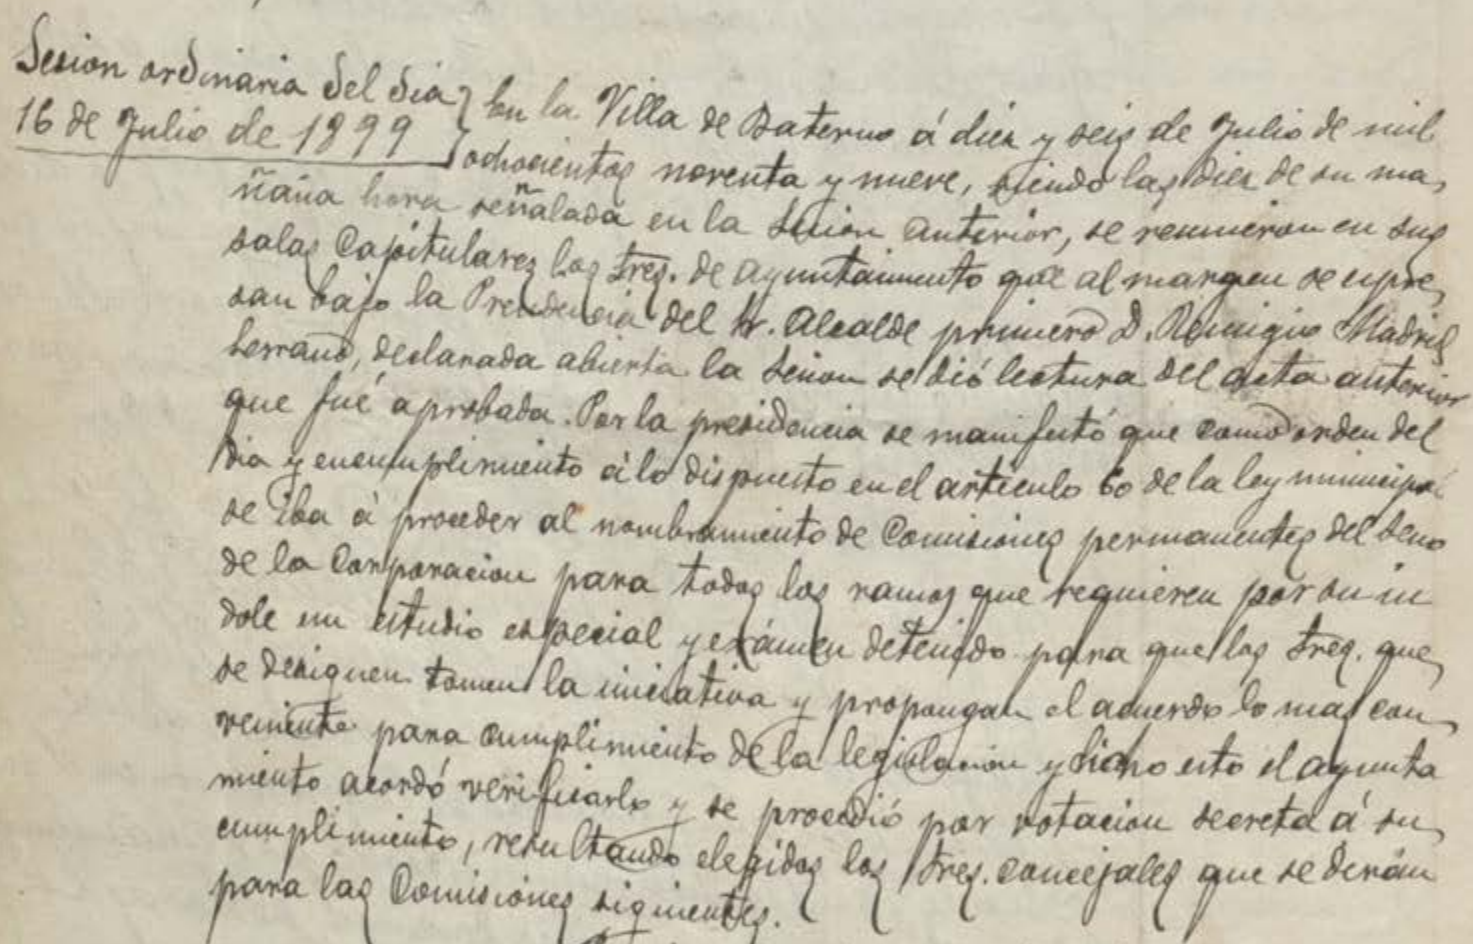 Sesion ordinaria del dia } En la Villa de Baterno á diez y seis de Julio de mil
16 de Julio de 1899 } ochocientos noventa y nueve, siendo las diez de su ma-
ñana hora señalada en la sesion anterior, se reunieron en sus
salas Capitulares los Sres. de ayuntamiento que al margen se expre-
san bajo la Presidencia del Sr. Alcalde primero D. Remigio Madrid
Serrano, declarada abierta la sesion se dió lectura del acta anterior
que fué aprobada. Por la presidencia se manifestó que como orden del
dia y en cumplimiento á lo dispuesto en el articulo 60 de la ley municipal
se iba á proceder al nombramiento de Comisiones permanentes del seno
de la Corporacion para todos los ramos que requieren por su in
dole un estudio especial y exámen detenido para que los Sres. que
se designen tomen la iniciativa y propongan el acuerdo lo mas con-
veniente para cumplimiento de la legislacion y dicho esto el ayunta
miento acordó verificarlo y se procedió por votacion secreta á su
cumplimiento, resultando elegidos los Sres. concejales que se dirán
para las Comisiones siguientes.